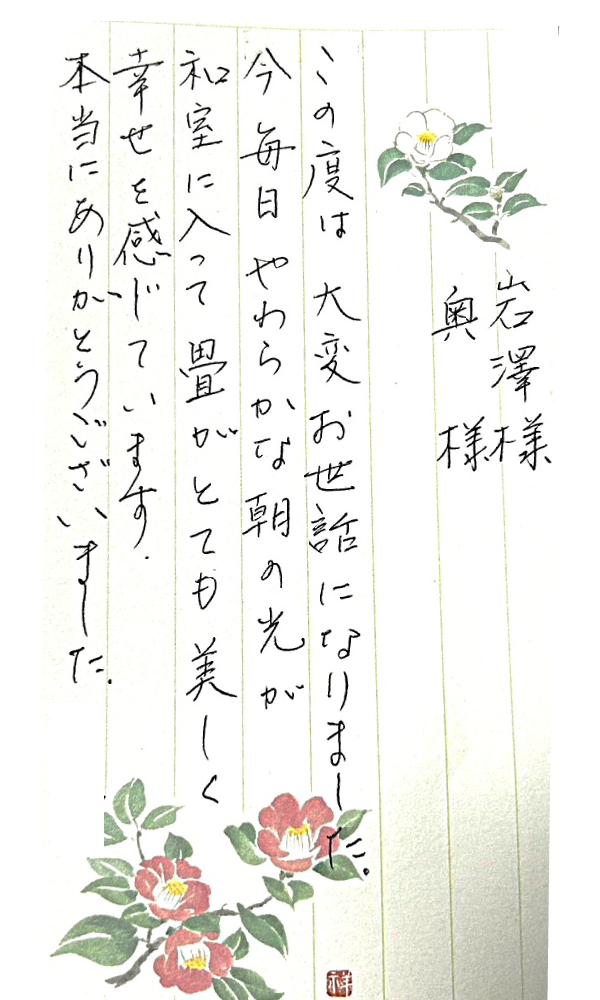 岩澤様
奥様
この度は大変お世話になりました。
今毎日やわらかな朝の光が
和室に入って畳がとても美しく
幸せを感じています.
本当にありがとうございました.
祥